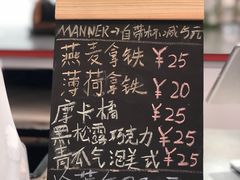 MANNER→自带杯减5元
燕麦拿铁 ¥25
薄荷拿铁 ¥20
摩卡橘 ¥25
黑松露巧克力 ¥25
青瓜气泡美式 ¥25